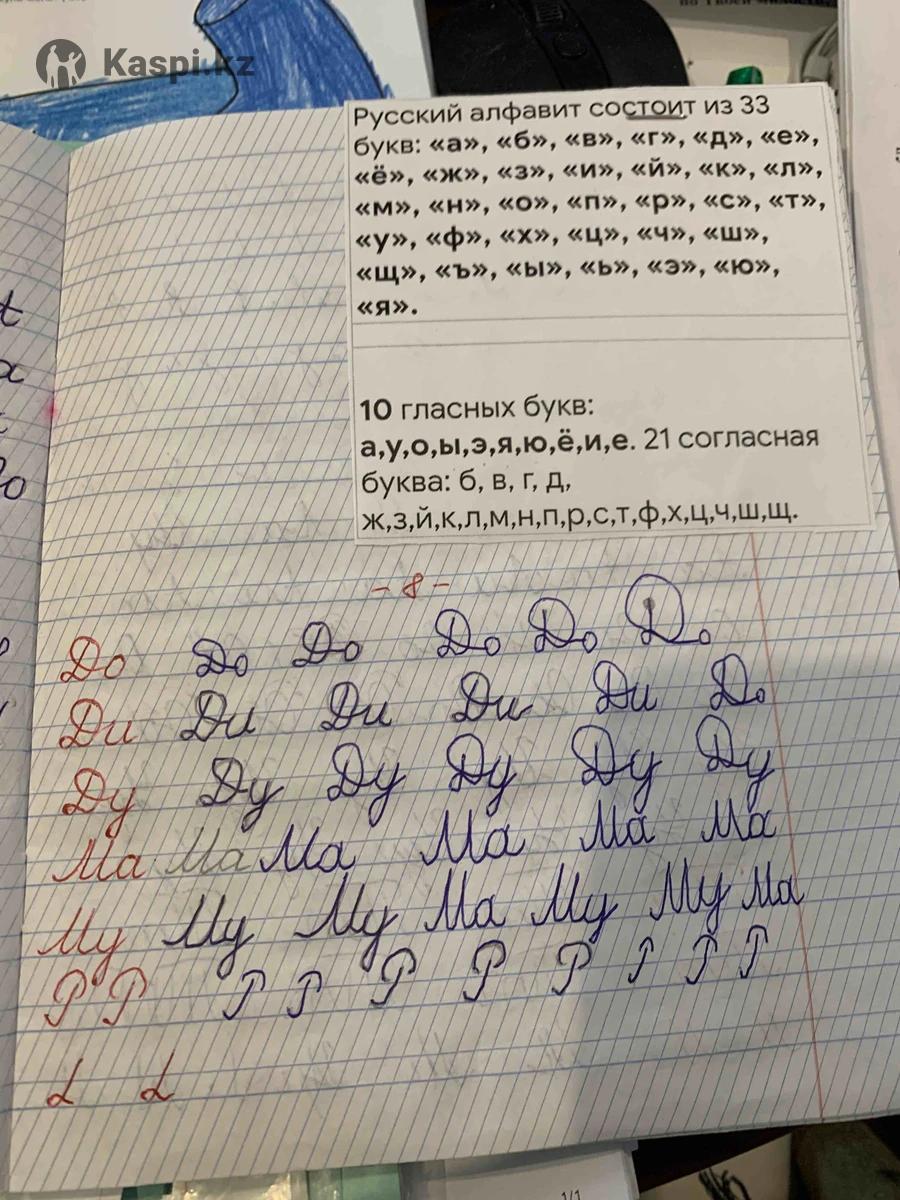 Kaspi.kz
Русский алфавит состоит из 33
букв: «а», «б», «в», «г», «д», «е»,
«ё», «ж», «з», «и», «й», «к», «л»,
«м», «н», «о», «п», «р», «с», «т»,
«у», «ф», «х», «ц», «ч», «ш»,
«щ», «ъ», «ы», «ь», «э», «ю»,
«я».
10 гласных букв:
а,у,о,ы,э,я,ю,ё,и,е. 21 согласная
буква: б, в, г, д,
ж,з,й,к,л,м,н,п,р,с,т,ф,х,ц,ч,ш,щ.
- 8 -
До До До До До До
Ди Ди Ди Ди Ди До
Ду Ду Ду Ду Ду Ду
Ма Ма Ма Ма Ма Ма
Му Му Му Ма Му Му Ма
Р Р Р Р Р Р Р Р Р Р
1/1